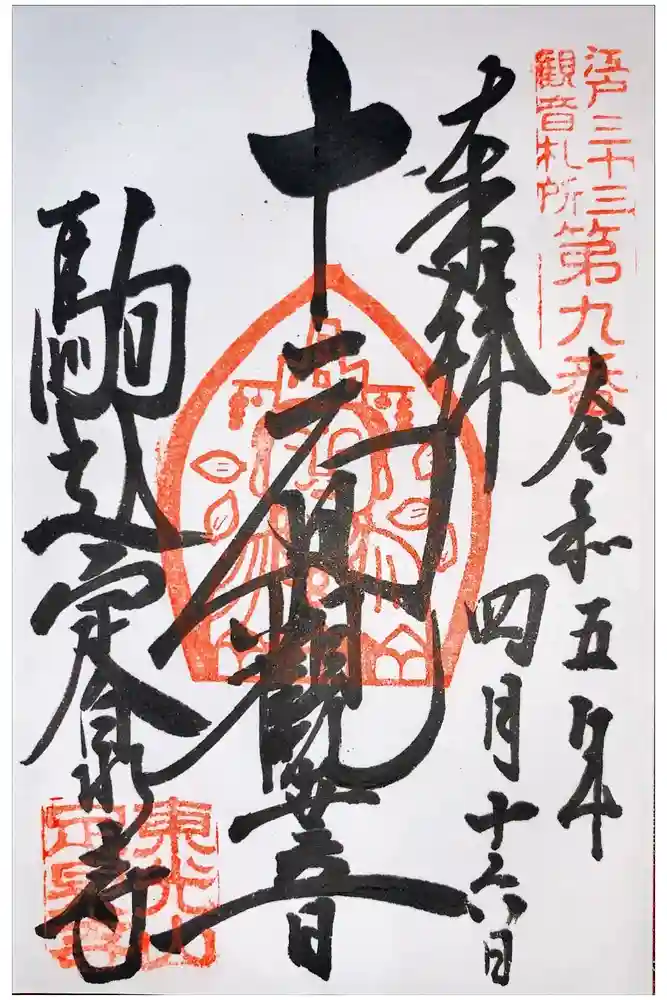 江戸三十三
観音札所
第九番
令和五年
四月十六日
奉拝
十一面観世音
駒込定泉寺
東光山
定泉寺